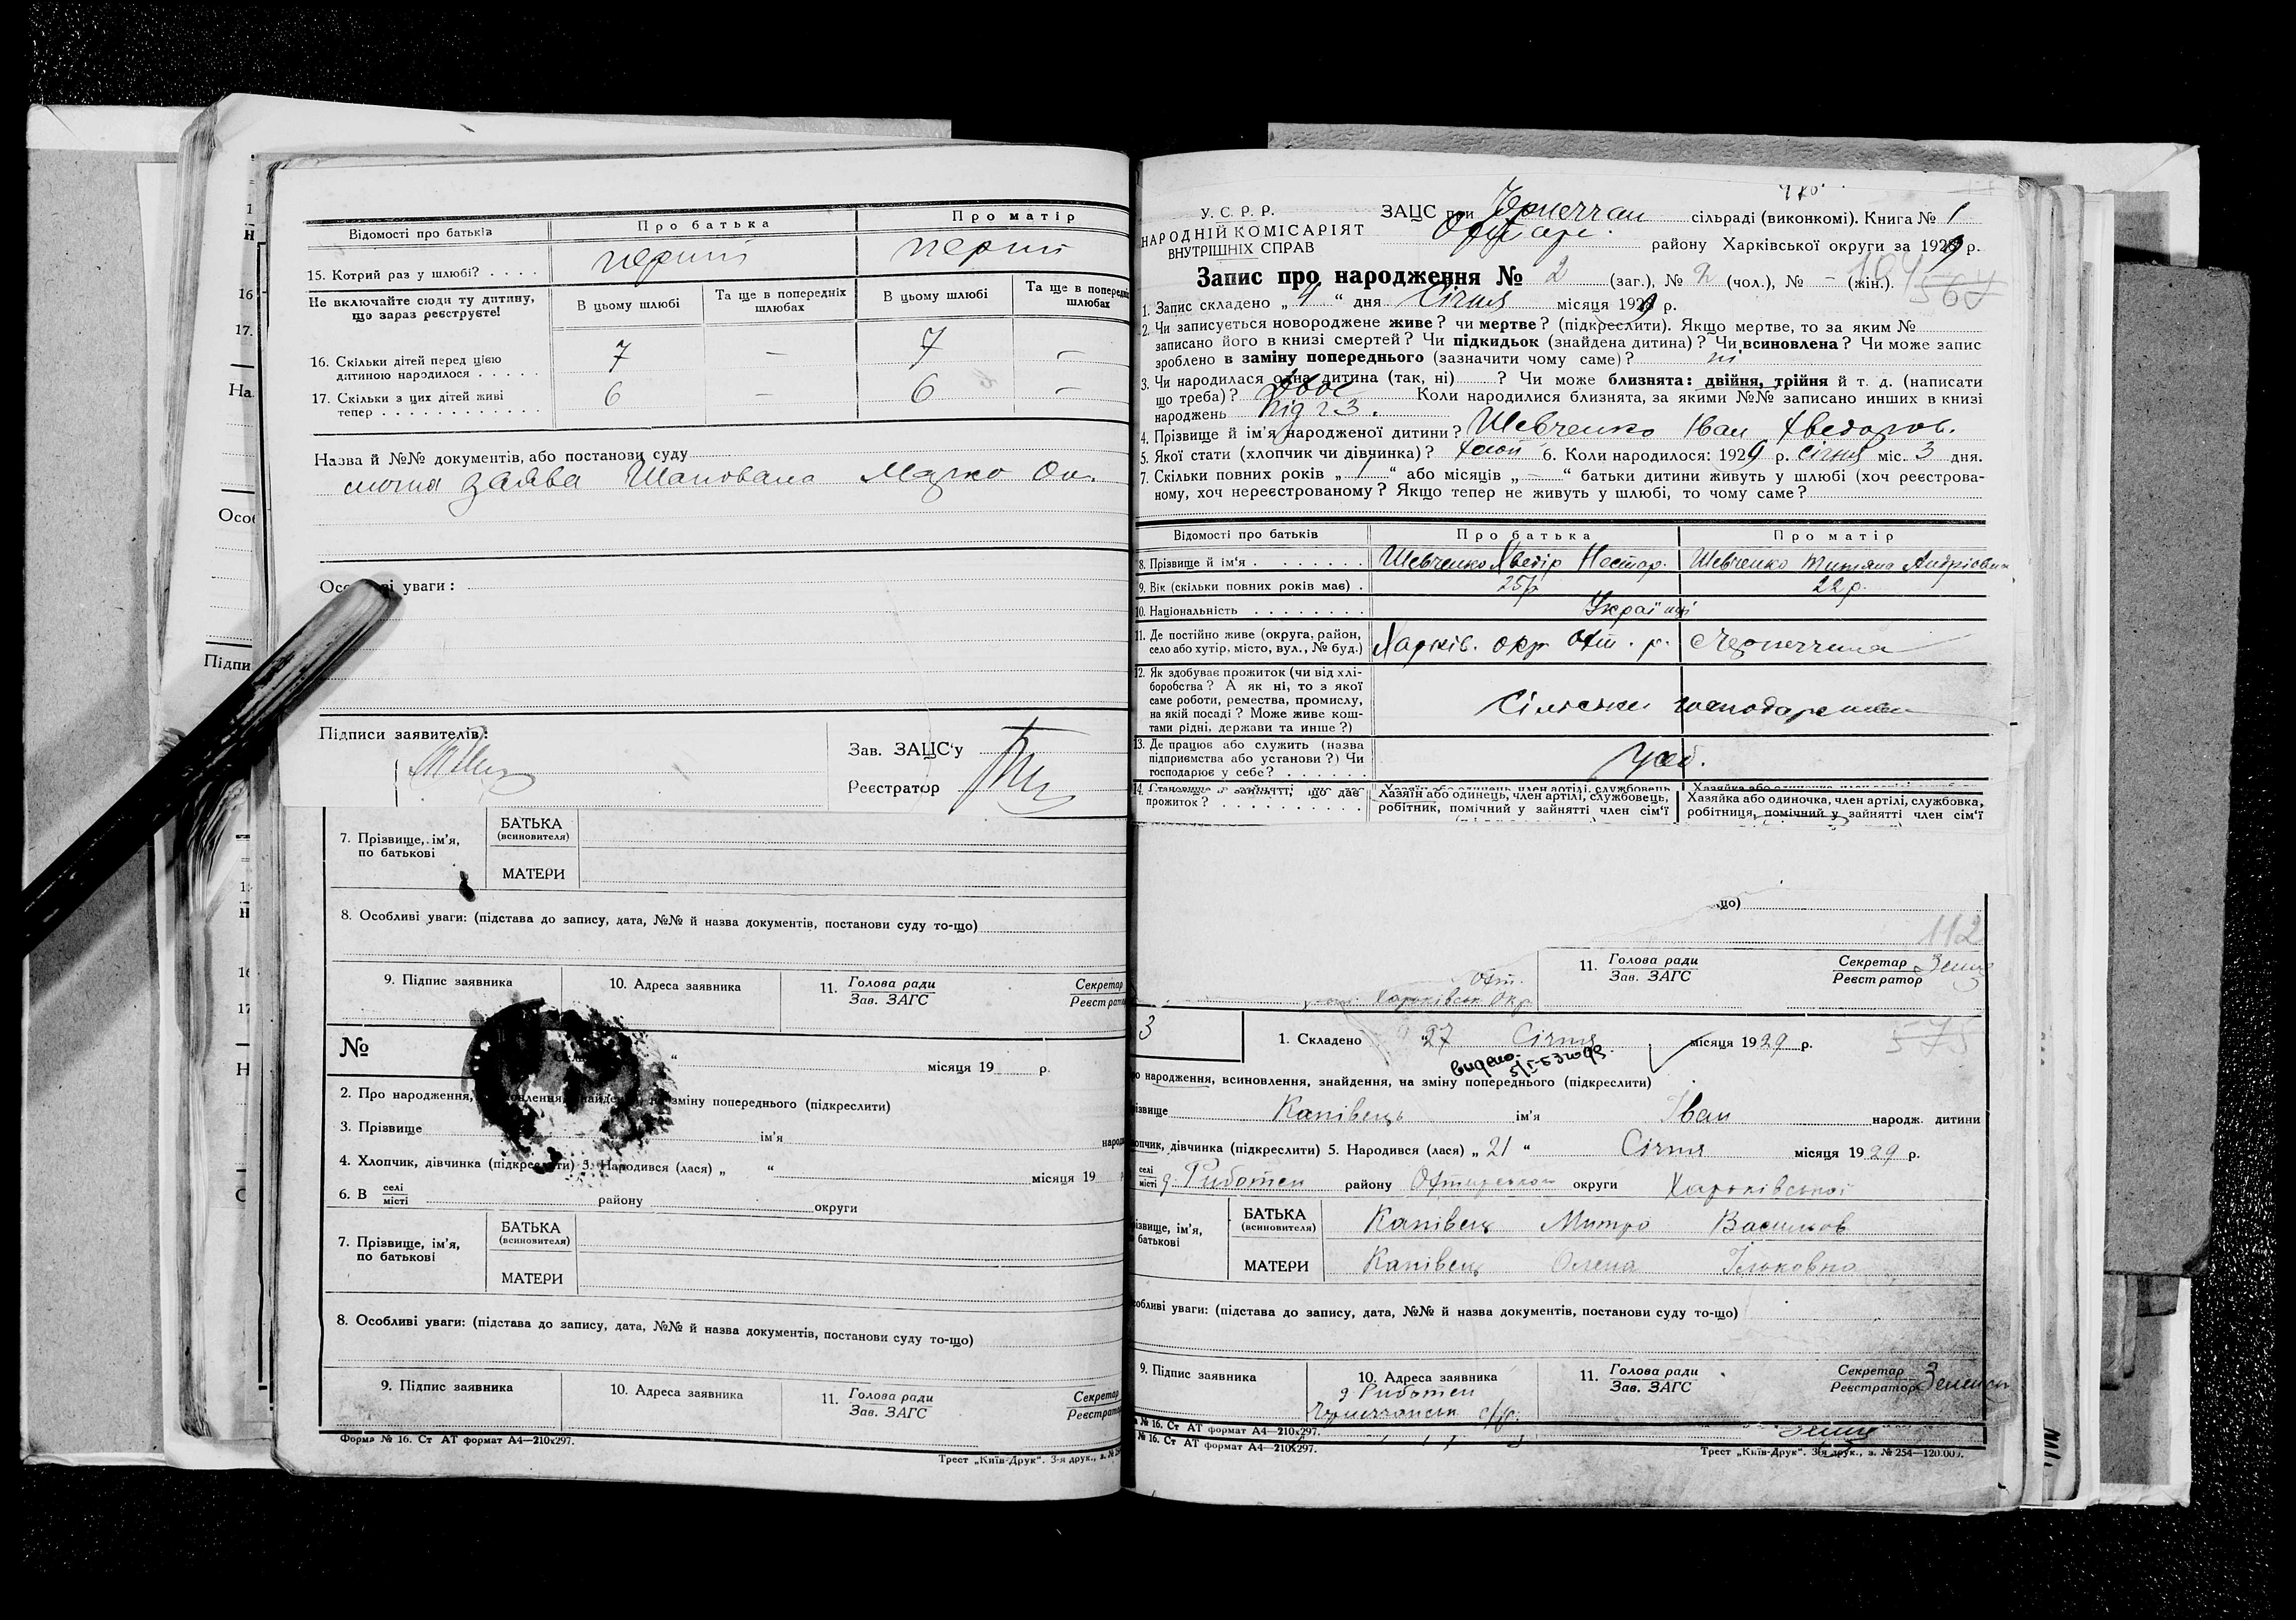 Відомості про батьків
Про батька
Про матір
15. Котрий раз у шлюбі? . . . .
перший
перший
Не включайте сюди ту дитину, що зараз реєструєте!
В цьому шлюбі
Та ще в попередніх шлюбах
В цьому шлюбі
Та ще в попередніх шлюбах
16. Скільки дітей перед цією дитиною народилося . . . . .
7
—
7
—
17. Скільки з цих дітей живі тепер . . . . . . . . . . . . .
6
—
6
—
Назва й №№ документів, або постанови суду
заява Шаповала Марко
Особливі уваги:
Підписи заявителів:
Зав. ЗАЦС'у
Реєстратор
7. Прізвище, ім'я, по батькові
БАТЬКА
(всиновителя)
МАТЕРИ
8. Особливі уваги: (підстава до запису, дата, №№ й назва документів, постанови суду то-що)
9. Підпис заявника
10. Адреса заявника
11. Голова ради
Зав. ЗАГС
Секретар
Реєстратор
№
місяця 19 р.
2. Про народження, всиновлення, знайдення, на зміну попереднього (підкреслити)
3. Прізвище
ім'я
народж
4. Хлопчик, дівчинка (підкреслити) 5. Народився (лася) „ “
місяця 19
6. В селі місті
району
округи
7. Прізвище, ім'я, по батькові
БАТЬКА
(всиновителя)
МАТЕРИ
8. Особливі уваги: (підстава до запису, дата, №№ й назва документів, постанови суду то-що)
9. Підпис заявника
10. Адреса заявника
11. Голова ради
Зав. ЗАГС
Секретар
Реєстратор
Форма № 16. Ст АТ формат А4—210х297.
Трест „Київ-Друк“. 3-я друк., з. № 254
У. С. Р. Р.
НАРОДНІЙ КОМІСАРІЯТ
ВНУТРІШНІХ СПРАВ
ЗАЦС при Чернеччан сільраді (виконкомі). Книга № 1
Охтирс. району Харківської округи за 1929 р.
Запис про народження № 2 (заг.), № 2 (чол.), № — (жін.).
567
1. Запис складено „ 9 “ дня Січня місяця 1929 р.
2. Чи записується новороджене живе? чи мертве? (підкреслити). Якщо мертве, то за яким №
записано його в книзі смертей? Чи підкидьок (знайдена дитина)? Чи всиновлена? Чи може запис
зроблено в заміну попереднього (зазначити чому саме)? ні
3. Чи народилася одна дитина (так, ні) ? Чи може близнята: двійня, трійня й т. д. (написати
що треба)? двоє Коли народилися близнята, за якими №№ записано инших в книзі
народжень під 23.
4. Прізвище й ім'я народженої дитини? Шевченко Іван Хведоров.
5. Якої стати (хлопчик чи дівчинка)? хлоп 6. Коли народилося: 1929 р. Січня міс. 3 дня.
7. Скільки повних років „ 1 “ або місяців „ — “ батьки дитини живуть у шлюбі (хоч реєстрова-
ному, хоч нереєстрованому? Якщо тепер не живуть у шлюбі, то чому саме?
Відомості про батьків
Про батька
Про матір
8. Прізвище й ім'я . . . . . . .
Шевченко Хведір Нестор.
Шевченко Титяна Андріївна
9. Вік (скільки повних років має) .
25р
22 р.
10. Національність . . . . . . . .
Українці
11. Де постійно живе (округа, район, село або хутір, місто, вул., № буд.)
Харків. окр Охт. р. Чернеччина
12. Як здобуває прожиток (чи від хлі-
боробства? А як ні, то з якої
саме роботи, ремества, промислу,
на якій посаді? Може живе кош-
тами рідні, держави та инше?)
Сільськи господарством
13. Де працює або служить (назва
підприємства або установи?) Чи
господарює у себе? . . . . . .
у себ.
14. Становище в занятті, що дає
прожиток? . . . . . . . . . .
Хазяїн або одинець, член артілі, службовець,
робітник, помічний у зайнятті член сім'ї
Хазяйка або одиночка, член артілі, службовка,
робітниця, помічний у зайнятті член сім'ї
що)
112
11. Голова ради
Зав. ЗАГС
Секретар
Реєстратор
Охт.
Харківськ Окр
3
1. Складено 27 Січня місяця 1929 р.
видано
о народження, всиновлення, знайдення, на зміну попереднього (підкреслити)
ізвище Капівець ім'я Іван народж. дитини
опчик, дівчинка (підкреслити) 5. Народився (лася) „ 21 “ Січня місяця 1929 р.
селі місті д. Риботен району Охтирського округи Харківської
ізвище, ім'я, батькові
БАТЬКА
(всиновителя)
Капівець Митро Васильов
МАТЕРИ
Капівець Олена Ільковна
обливі уваги: (підстава до запису, дата, №№ й назва документів, постанови суду то-що)
9. Підпис заявника
10. Адреса заявника
д Риботен
11. Голова ради
Зав. ЗАГС
Секретар
Реєстратор
а № 16. Ст АТ формат А4—210х297.
№ 16. Ст АТ формат А4—210х297.
Трест „Київ-Друк“. 3-я друк., з. № 254—120.000.